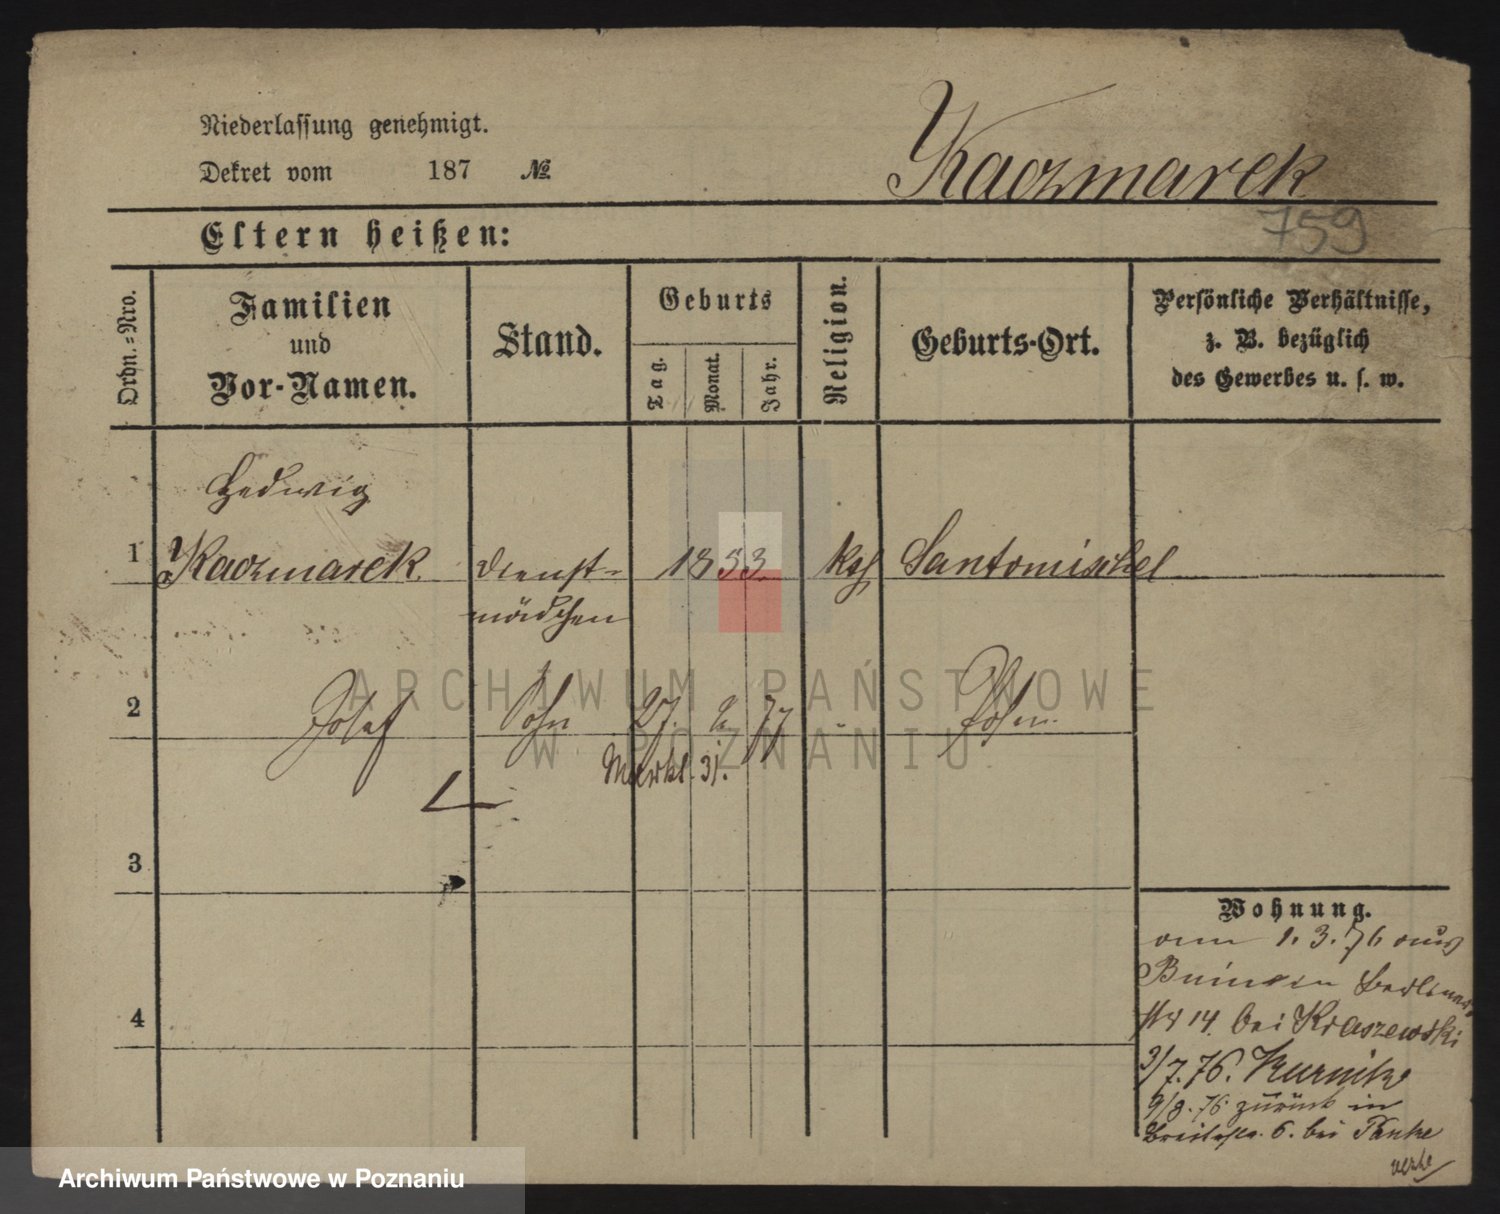 Niederlassung genehmigt.
Dekret vom 187 №
Kaczmarek
759
Eltern heißen:
Ordn.-Nro.
Familien
und
Vor-Namen.
Stand.
Geburts
Tag.
Monat.
Jahr.
Religion.
Geburts-Ort.
Persönliche Verhältnisse,
z. B. bezüglich
des Gewerbes u. s. w.
Hedwig
1 Kaczmarek Dienst- 1853 kath Santomischel
mädchen
2 Josef Sohn 27. 2 77 - Posen.
Markt. 31.
3
4
Wohnung.
am 1. 3. 76 aus
Bnin in Berliner
14. bei Kraszewski
3/7. 76. Kurnik
9/8. 76 zurück in
Breitestr. 6. bei
ARCHIWUM PAŃSTWOWE
W POZNANIU
Archiwum Państwowe w Poznaniu